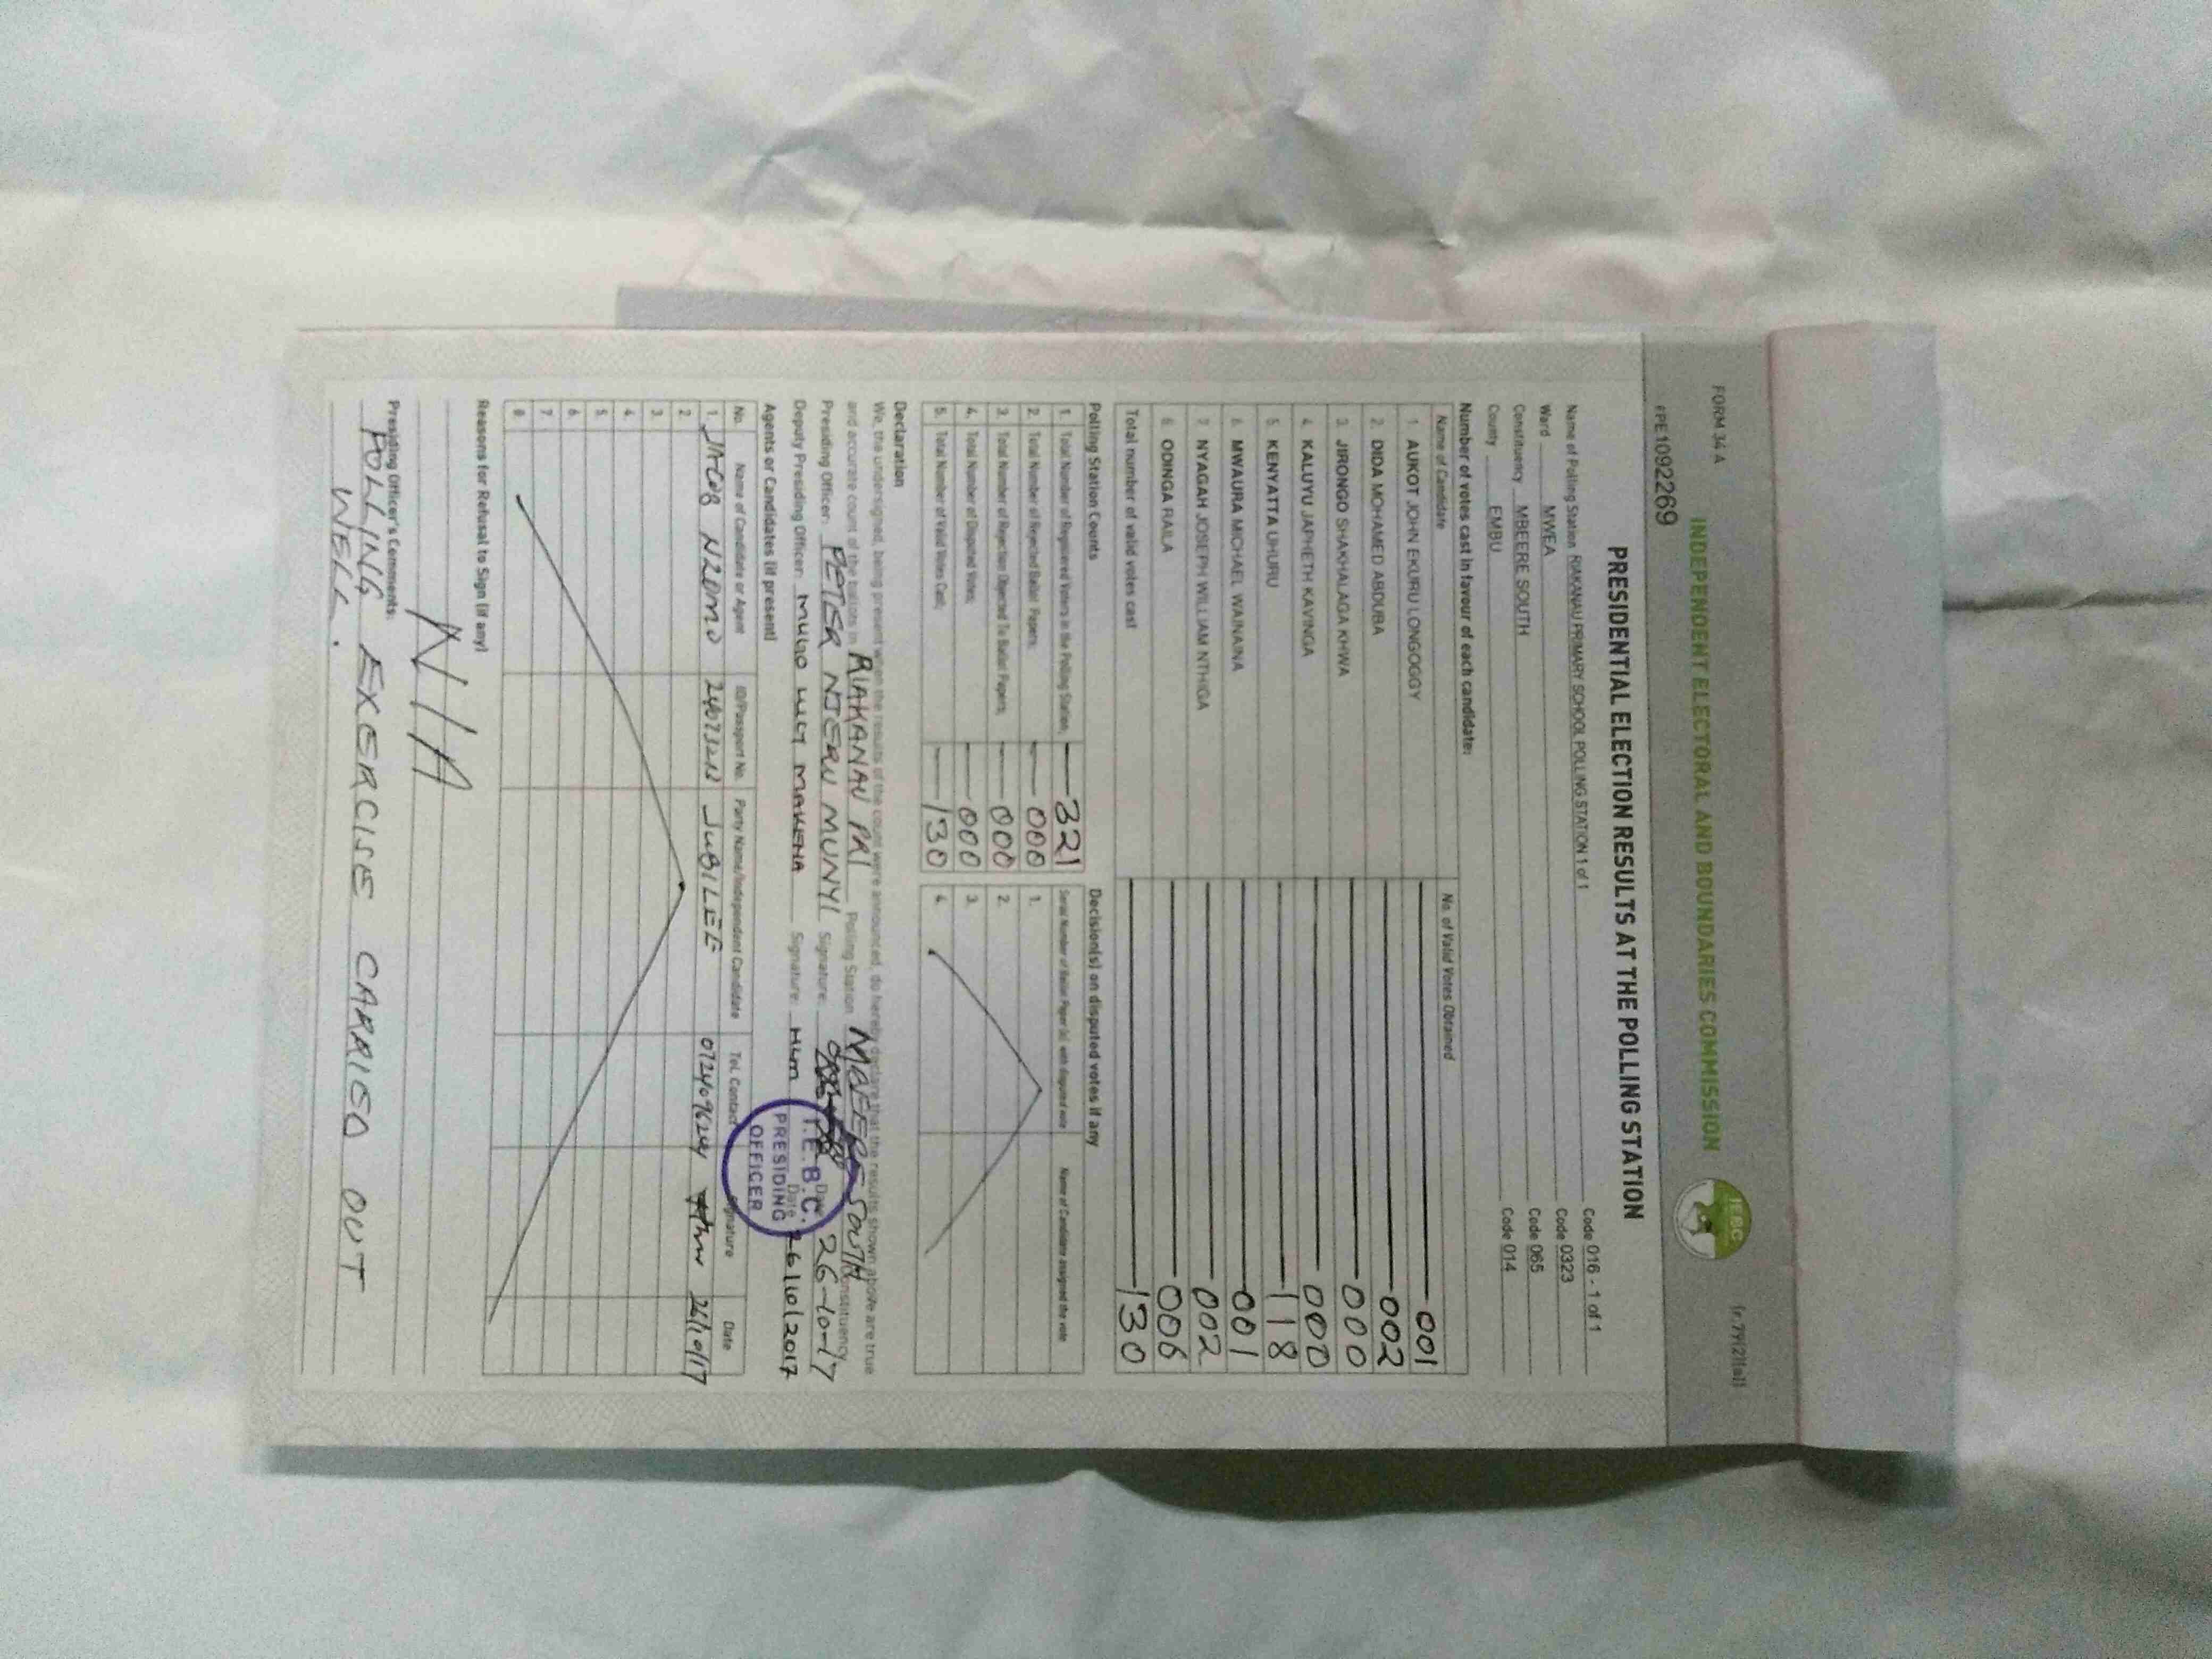 FORM 34 A
(r.79(2)(a))
INDEPENDENT ELECTORAL AND BOUNDARIES COMMISSION
IEBC
PPE1092269
PRESIDENTIAL ELECTION RESULTS AT THE POLLING STATION
Name of Polling Station RIAKANAU PRIMARY SCHOOL POLLING STATION 1 of 1 Code 016 - 1 of 1
Ward MWEA Code 0323
Constituency MBEERE SOUTH Code 065
County EMBU Code 014
Number of votes cast in favour of each candidate:
Name of Candidate No. of Valid Votes Obtained
1. AUKOT JOHN EKURU LONGOGGY 001
2. DIDA MOHAMED ABDUBA 002
3. JIRONGO SHAKHALAGA KHWA 000
4. KALUYU JAPHETH KAVINGA 000
5. KENYATTA UHURU 118
6. MWAURA MICHAEL WAINAINA 001
7. NYAGAH JOSEPH WILLIAM NTHIGA 002
8. ODINGA RAILA 006
Total number of valid votes cast 130
Polling Station Counts
1. Total Number of Registered Voters in the Polling Station; 321
2. Total Number of Rejected Ballot Papers; 000
3. Total Number of Rejection Objected To Ballot Papers; 000
4. Total Number of Disputed Votes; 000
5. Total Number of Valid Votes Cast; 130
Decision(s) on disputed votes if any
Serial Number of Ballot Paper (s) with disputed vote Name of Candidate assigned the vote
1.
2.
3.
4.
Declaration
We, the undersigned, being present when the results of the count were announced, do hereby declare that the results shown above are true
and accurate count of the ballots in RIAKANAU PRI Polling Station MBEERE SOUTH Constituency
Presiding Officer: PETER NJERU MUNYI Signature: Date 26-10-17
Deputy Presiding Officer: MUGO LUCY MAKENA Signature: HLM Date 26/10/2017
I.E.B.C.
PRESIDING
OFFICER
Agents or Candidates (if present)
No. Name of Candidate or Agent ID/Passport No. Party Name/Independent Candidate Tel. Contact Signature Date
1. JACOB NZOMO JUBILEE 26/10/17
2.
3.
4.
5.
6.
7.
8.
Reasons for Refusal to Sign (if any)
N/A
Presiding Officer's Comments:
POLLING EXERCISE CARRIED OUT
WELL.